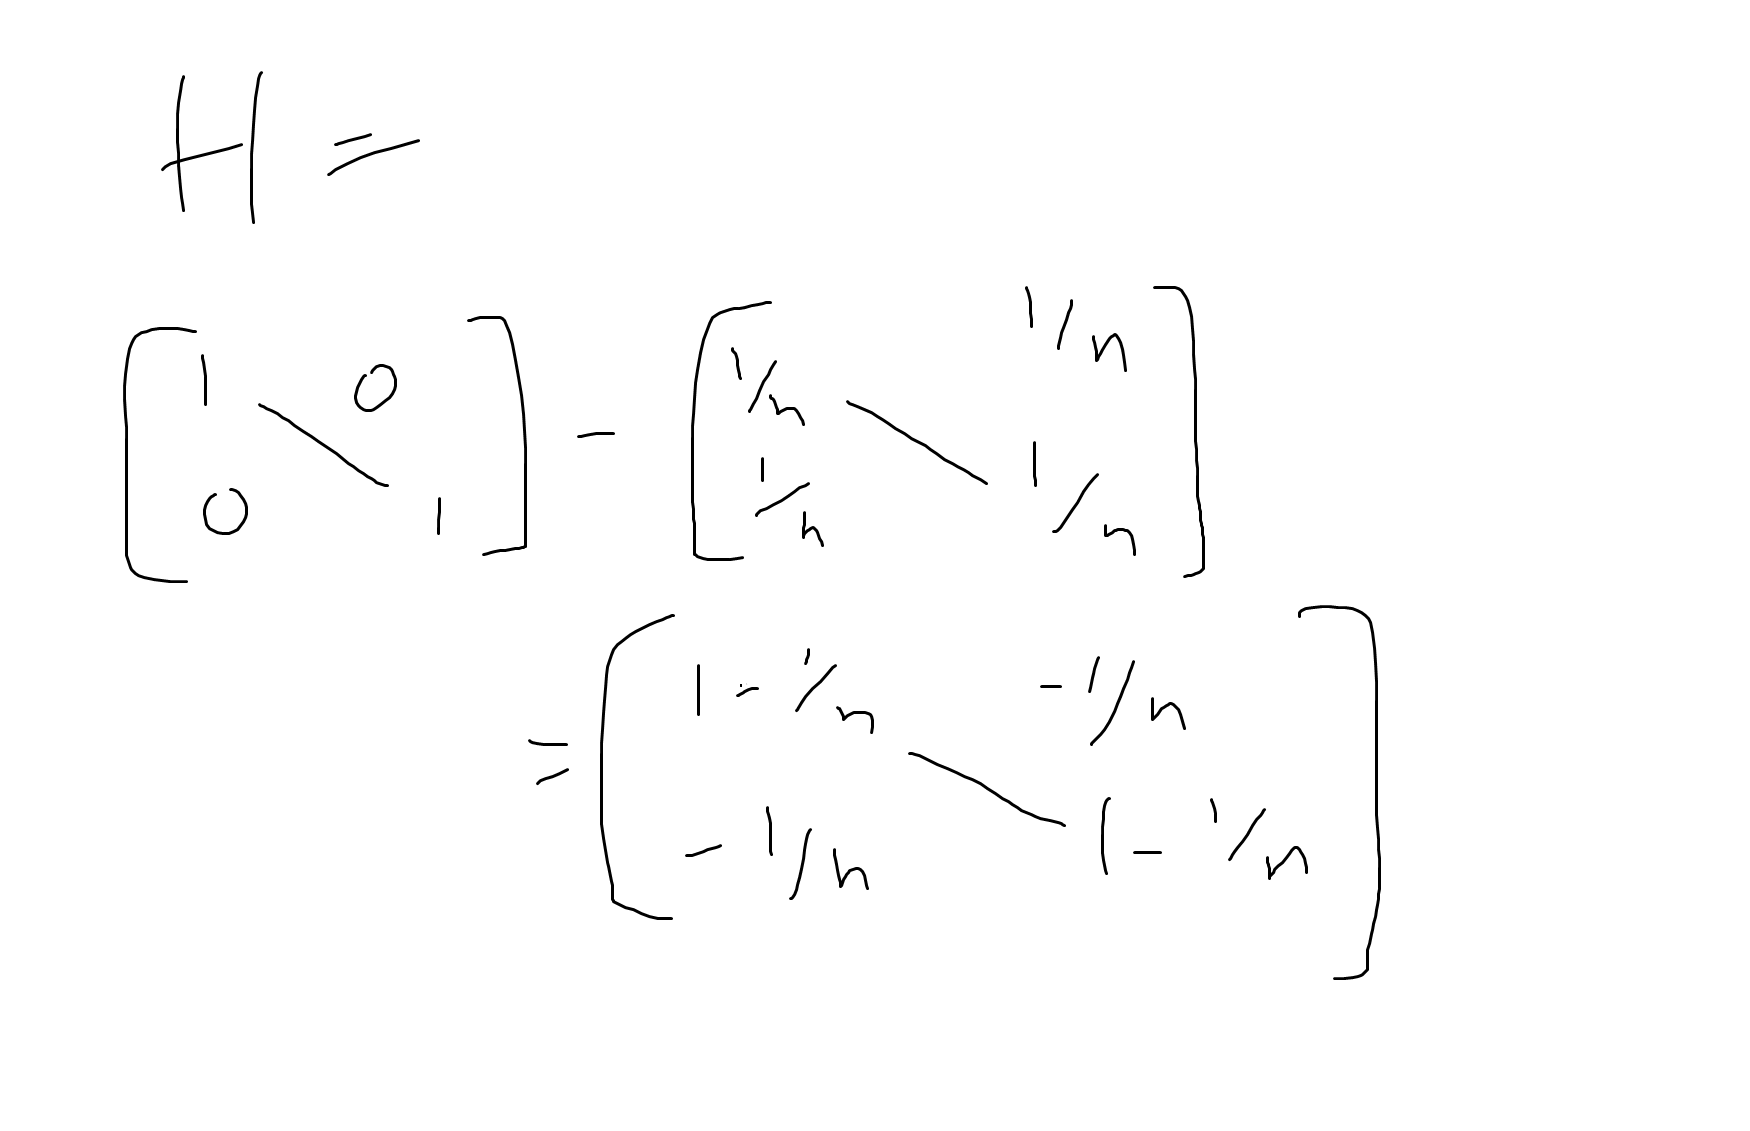 H =
[ 1 0 ] - [ 1/n 1/n ]
[ 0 1 ] [ 1/n 1/n ]
= [ 1 - 1/n -1/n ]
[ - 1/n 1 - 1/n ]